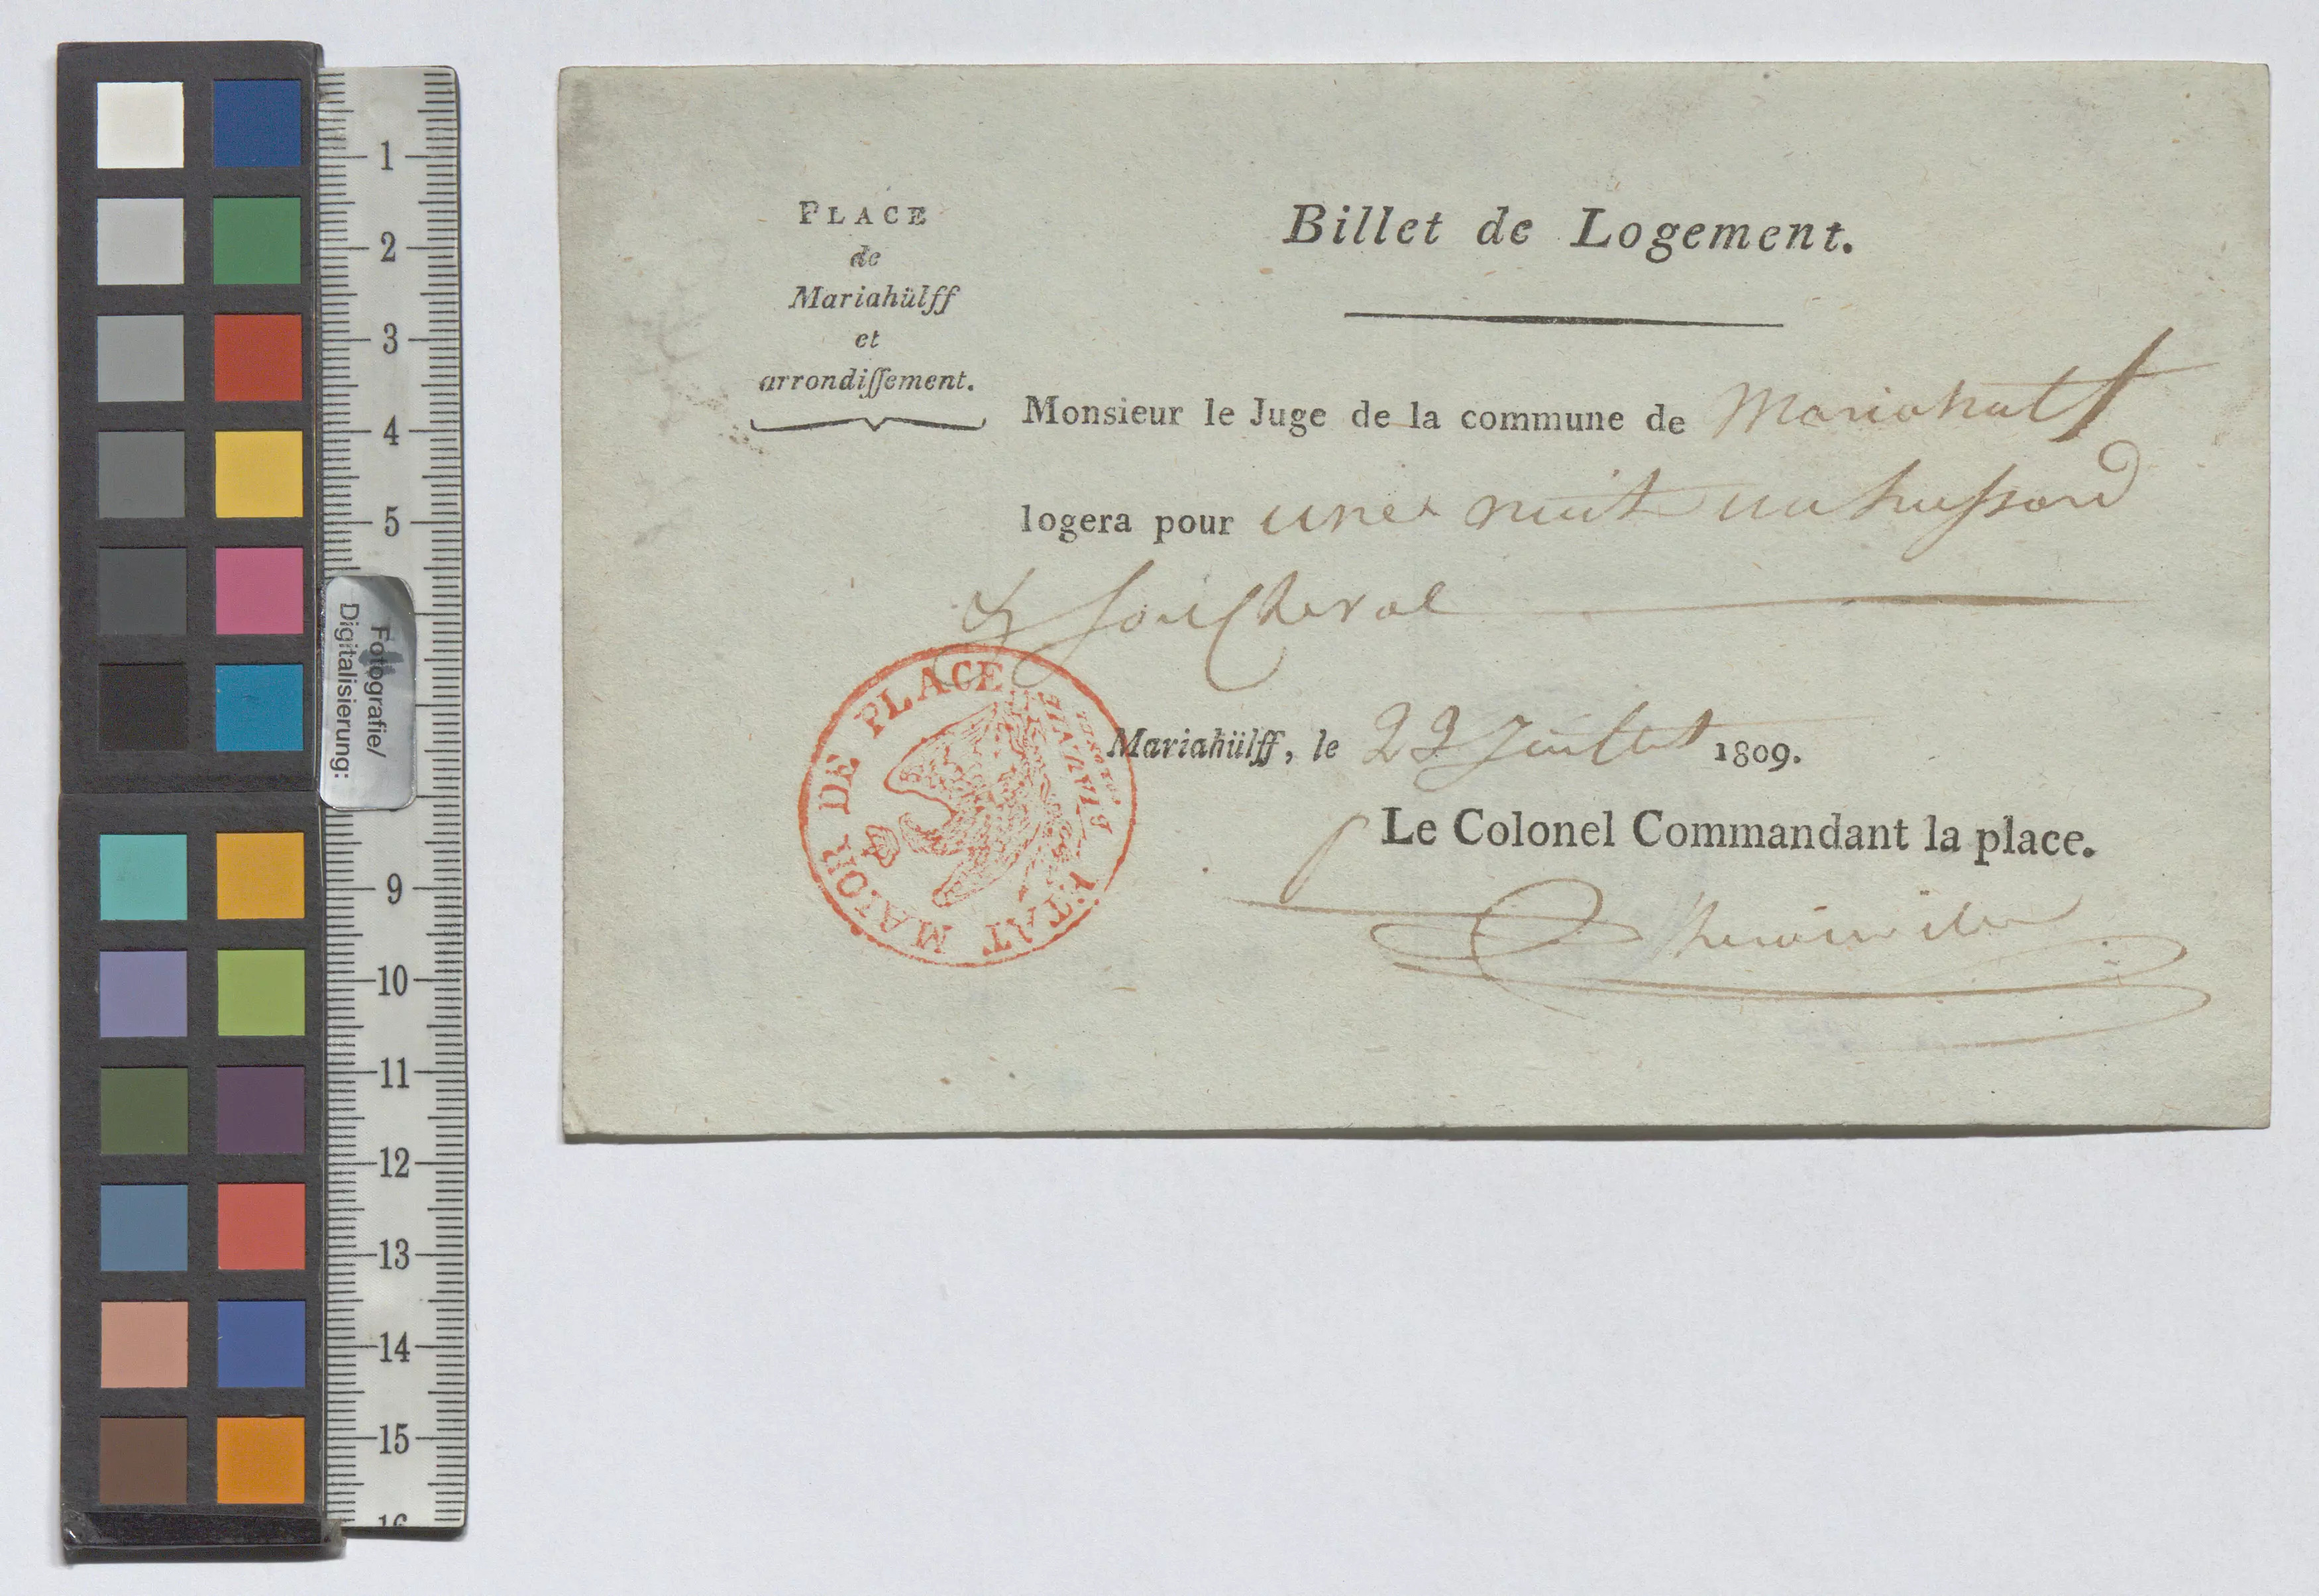 PLACE
de
Mariahülff
et
arrondiſſement.
Billet de Logement.
Monsieur le Juge de la commune de Mariahulf
logera pour une nuit un hussard
& son Cheval
Mariahülff, le 22 Juillet 1809.
Le Colonel Commandant la place.
ETAT MAJOR DE PLACE
1
2
3
4
5
9
10
11
12
13
14
15
16
Fotografie/
Digitalisierung: